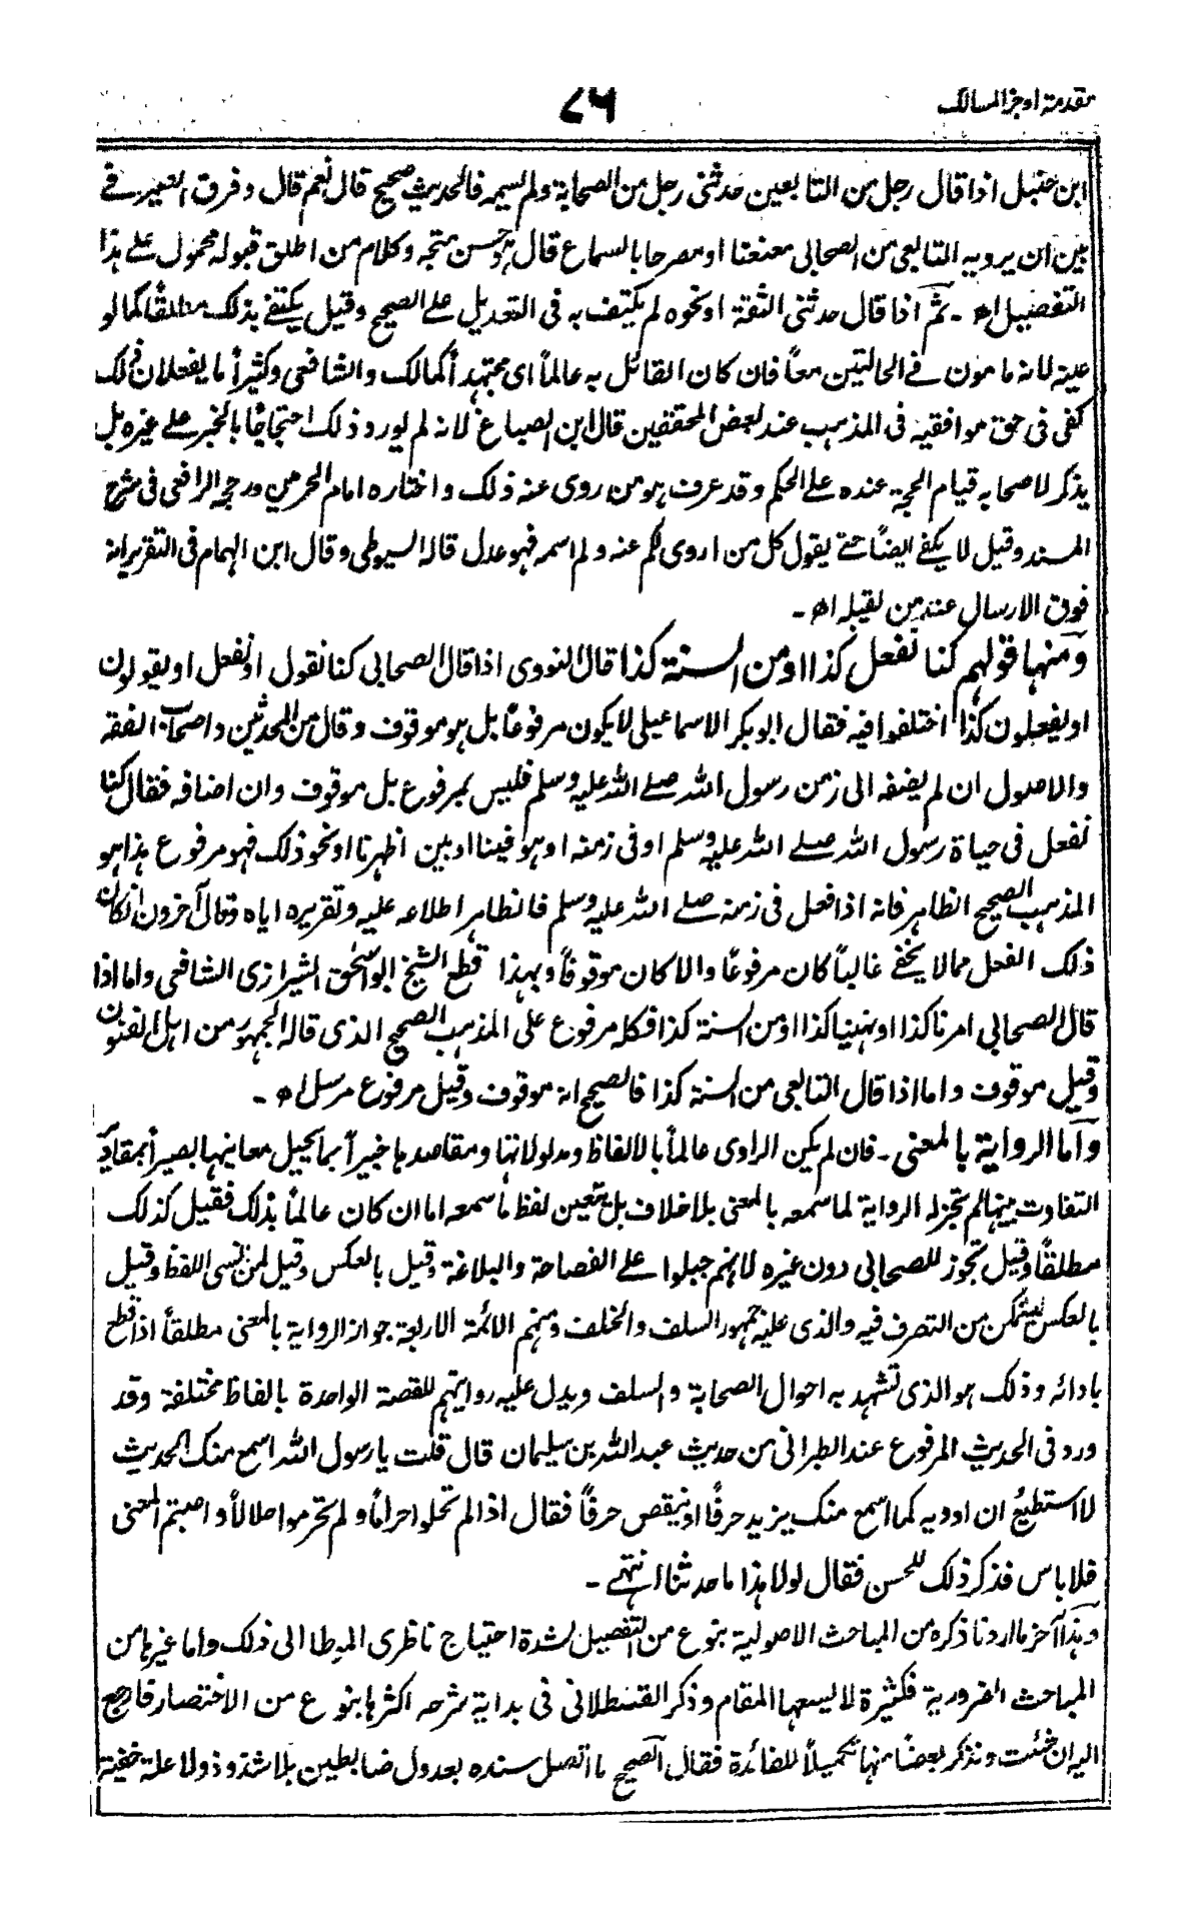 مقدمة اوجز المسالك
٨٦
ابن حنبل اذا قال رجل من التابعين حدثنى رجل من الصحابة ولم يسمه فالحديث صحيح قال نعم قال وفرق الصيرفے
بين ان يرويه التابعى من الصحابى معنعنا او مصرحا بالسماع قال وهو حسن متجه وكلام من اطلق قبوله محمول علے هذا
التفصيل اھ ـ ثم اذا قال حدثنى الثقة او نحوه لم يكتف به فى التعديل علے الصحيح وقيل يكتفے بذلك مطلقًا كما لو
عينه لانه مامون فے الحالتين معاً فان كان القائل به عالماً اى مجتهداً كمالك والشافعى وكثيراً ما يفعلان ذلك
كفى فى حق موافقيه فى المذهب عند بعض المحققين قال ابن الصباغ لانه لم يورد ذلك احتجاجًا بالخبر علے غيره بل
يذكر لاصحابه قيام الحجة عنده علے الحكم وقد عرف هو من روى عنه ذلك واختاره امام الحرمين ورجحه الرافعى فى شرح
المسند وقيل لا يكفے ايضاً حتے يقول كل من اروى لكم عنه ولم اسمه فهو عدل قاله السيوطى وقال ابن الهمام فى التقرير انه
فوق الارسال عند من يقبله اھ ـ
ومنها قولهم كنا نفعل كذا او من السنة كذا قال النووى اذا قال الصحابى كنا نقول او نفعل او يقولون
او يفعلون كذا اختلفوا فيه فقال ابو بكر الاسماعيلى لا يكون مرفوعاً بل هو موقوف وقال من المحدثين واصحاب الفقه
والاصول ان لم يضفه الى زمن رسول الله صلے الله عليه وسلم فليس بمرفوع بل موقوف وان اضافه فقال كنا
نفعل فى حياة رسول الله صلے الله عليه وسلم او فى زمنه او وهو فينا او بين اظهرنا او نحو ذلك فهو مرفوع هذا هو
المذهب الصحيح الظاهر فانه اذا فعل فى زمنه صلے الله عليه وسلم فالظاهر اطلاعه عليه وتقريره اياه وقال آخرون ان كان
ذلك الفعل مما لا يخفے غالباً كان مرفوعًا والا كان موقوفاً وبهذا قطع الشيخ ابو اسحٰق الشيرازى الشافعى واما اذا
قال الصحابى امرنا كذا او نهينا كذا او من السنة كذا فكله مرفوع على المذهب الصحيح الذى قاله الجمهور من اهل الفنون
وقيل موقوف واما اذا قال التابعى من السنة كذا فالصحيح انه موقوف وقيل مرفوع مرسل اھ ـ
واما الرواية بالمعنى ـ فان لم يكن الراوى عالماً بالالفاظ ومدلولاتها ومقاصدها خبيراً بما يحيل معانيها بصيراً بمقادير
التفاوت بينها لم تجز له الرواية لما سمعه بالمعنى بلا خلاف بل يتعين لفظ ما سمعه اما ان كان عالماً بذلك فقيل كذلك
مطلقاً وقيل تجوز للصحابى دون غيره لانهم جبلوا علے الفصاحة والبلاغة وقيل بالعكس وقيل لمن نسى اللفظ وقيل
بالعكس ليتمكن من التصرف فيه والذى عليه جمهور السلف والخلف ومنهم الائمة الاربعة جواز الرواية بالمعنى مطلقاً اذا قطع
بادائه وذلك هو الذى تشهد به احوال الصحابة والسلف ويدل عليه روايتهم للقصة الواحدة بالفاظ مختلفة وقد
ورد فى الحديث المرفوع عند الطبرانى من حديث عبد الله بن سليمان قال قلت يا رسول الله اسمع منك الحديث
لا استطيع ان اوديه كما اسمع منك يزيد حرفًا او ينقص حرفًا فقال اذا لم تحلوا حراماً ولم تحرموا حلالاً واصبتم المعنى
فلا باس فذكر ذلك للحسن فقال لولا هذا ما حدثنا انتهے ـ
وهذا آخر ما اردنا ذكره من المباحث الاصولية بنوع من التفصيل لشدة احتياج ناظرى المؤطا الى ذلك واما غيرها من
المباحث الضرورية فكثيرة لا يسعها المقام وذكر القسطلانى فى بداية شرحه اكثرها بنوع من الاختصار فارجع
اليه ان شئت ونذكر بعضًا منها تكميلاً للفائدة فقال الصحيح ما اتصل سنده بعدول ضابطين بلا شذوذ ولا علة خفية